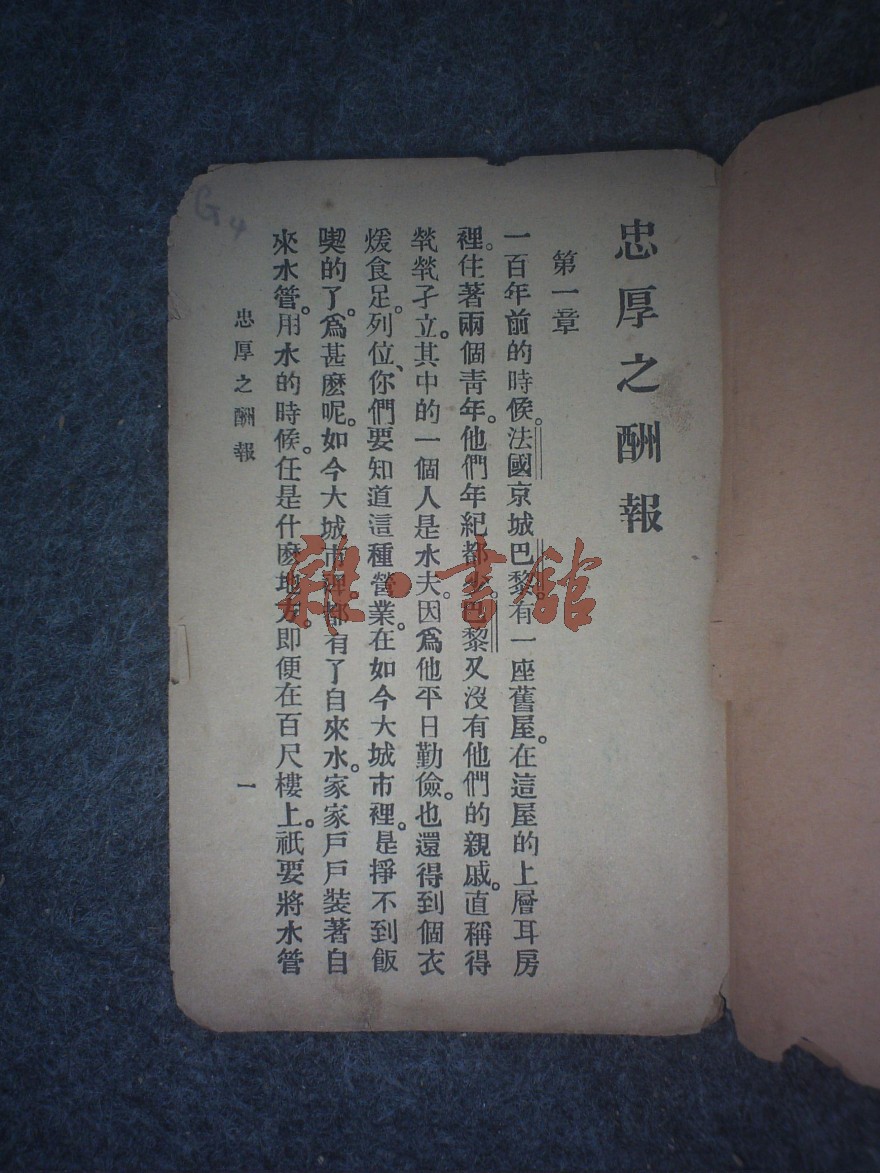 忠厚之酬報
第一章
一百年前的時候。法國京城巴黎。有一座舊屋。在這屋的上層耳房
裡。住著兩個靑年。他們年紀都少。巴黎又沒有他們的親戚。直稱得
煢煢孑立。其中的一個人是水夫。因爲他平日勤儉。也還得到個衣
煖食足。列位、你們要知道這種營業。在如今大城市裡。是掙不到飯
喫的了。爲甚麽呢。如今大城市裡都有了自來水。家家戶戶裝著自
來水管。用水的時候。任是什麽地方。即便在百尺樓上。祇要將水管
忠厚之酬報
一
G4
雜·書館